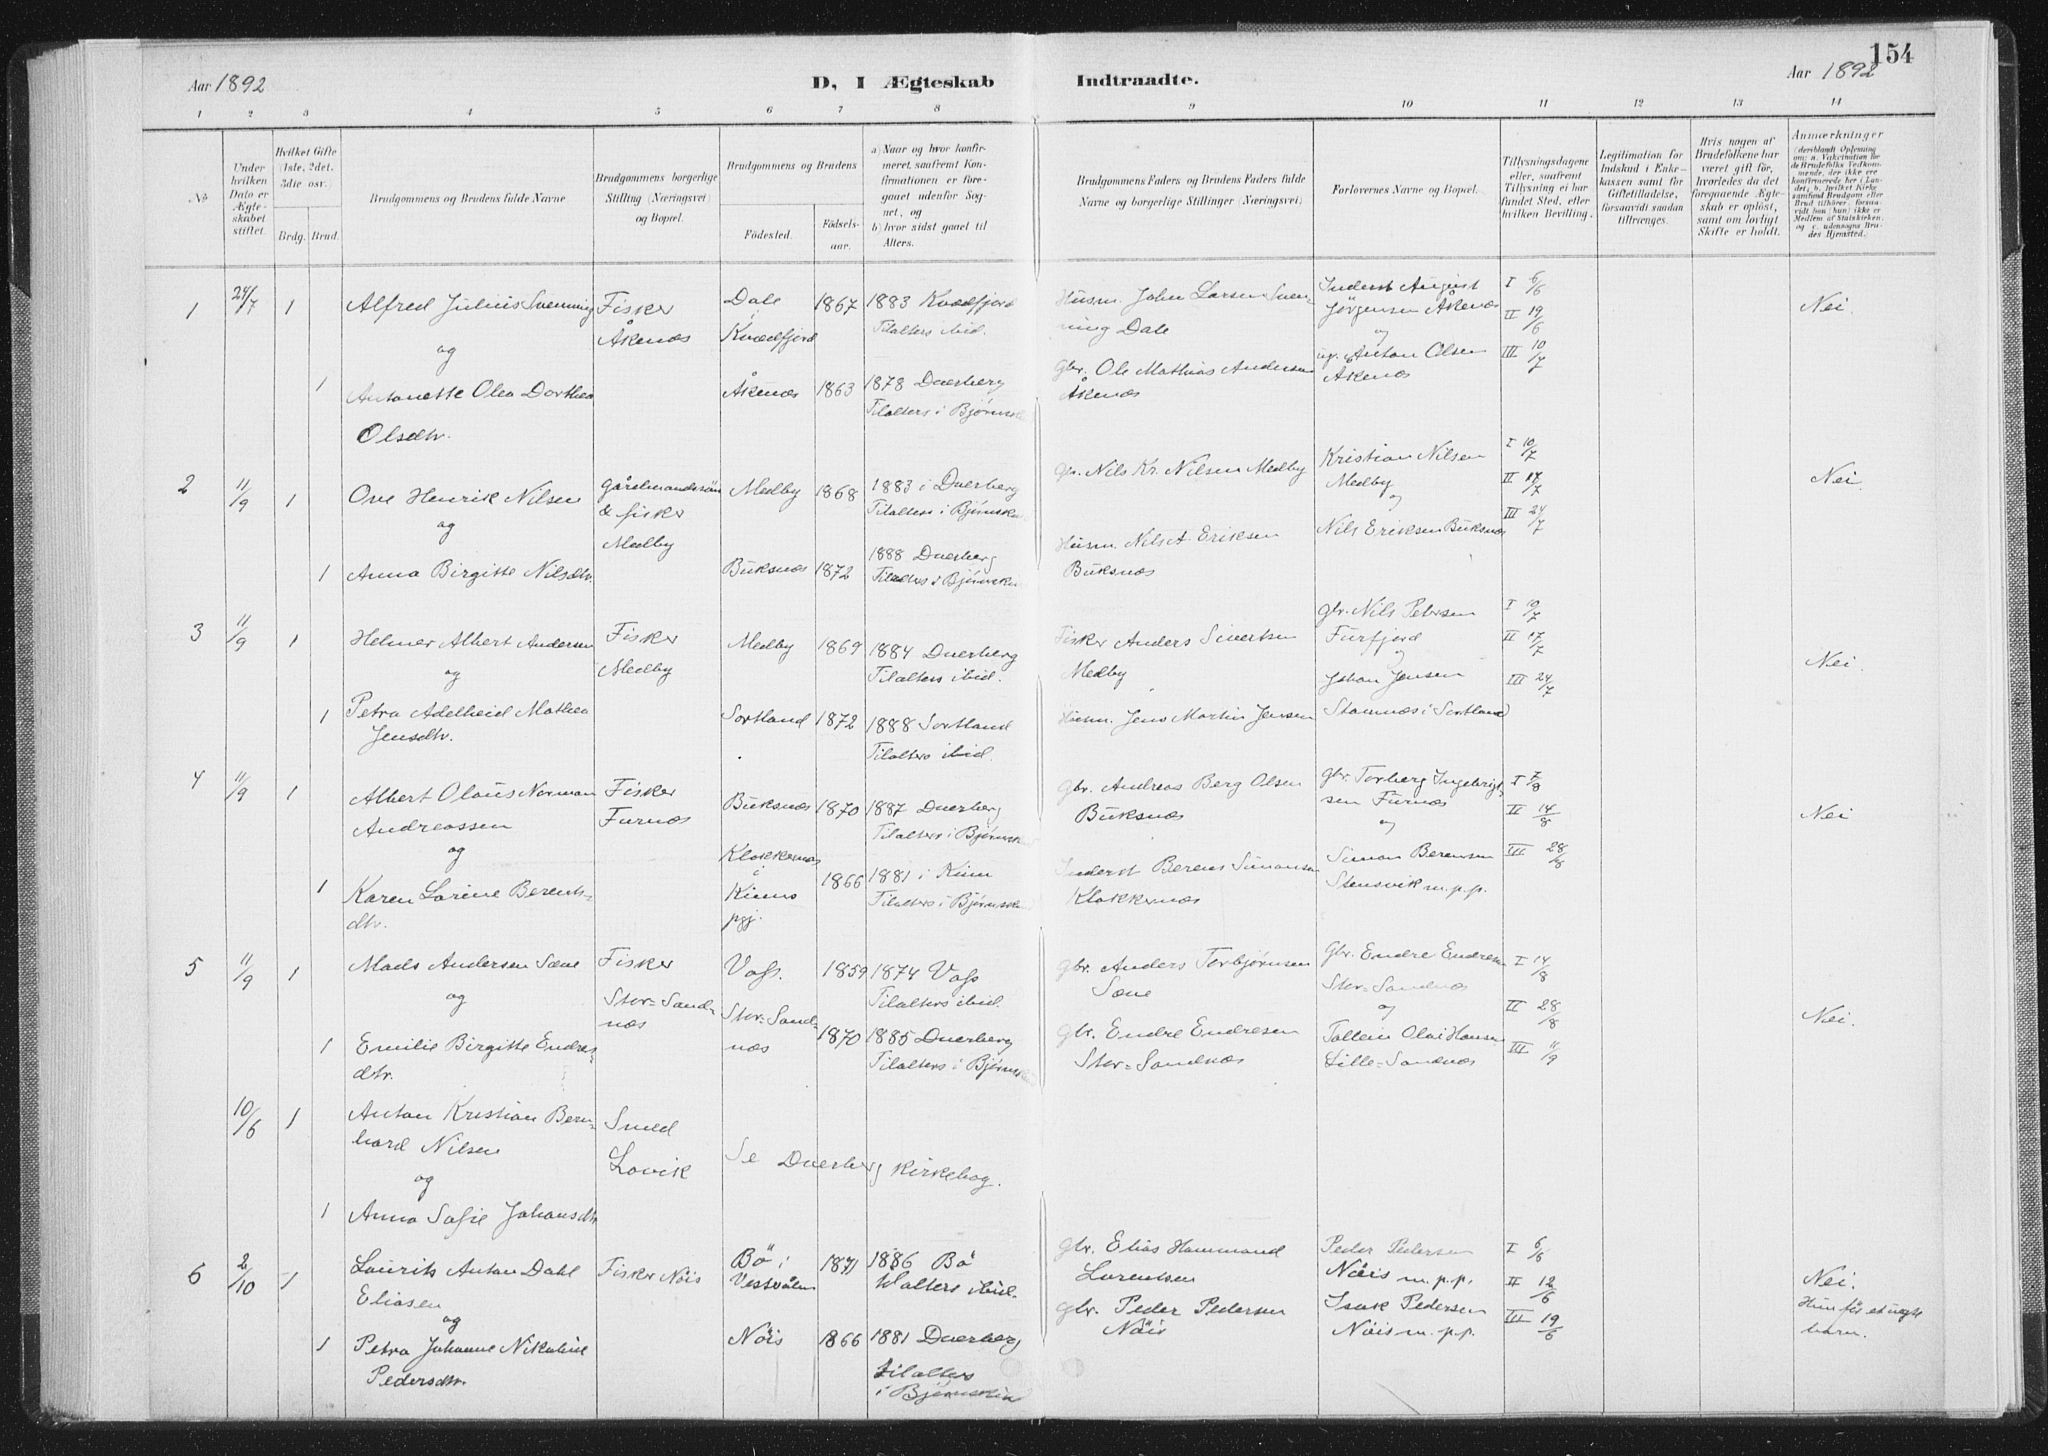 154
Aar 1892
D, I Ægteskab
Indtraadte.
Aar 1892
1 2 3 4 5 6 7 8 9 10 11 12 13 14
No
Under hvilken Dato er Ægteskabet stiftet.
Hvilket Gifte (1ste, 2det, 3die osv.)
Brdg. Brud.
Brudgommens og Brudens fulde Navne
Brudgommens borgerlige Stilling (Næringsvei) og Bopæl.
Brudgommens og Brudens
Fødested.
Fødselsaar.
a) Naar og hvor konfirmeret, saafremt Konfirmationen er foregaaet udenfor Sognet, og
b) hvor sidst gaaet til Alters.
Brudgommens Faders og Brudens Faders fulde Navne og borgerlige Stillinger (Næringsvei)
Forlovernes Navne og Bopæl.
Tillysningsdagene eller, saafremt Tillysning ei har fundet Sted, efter hvilken Bevilling.
Legitimation for Indskud i Enkekassen samt for Giftetilladelse, forsaavidt saadan tiltrænges.
Hvis nogen af Brudefolkene har været gift før, hvorledes da det foregaaende Ægteskab er opløst, samt om lovligt Skifte er holdt.
Anmærkninger
1 24/7 1
Alfred Julius Svenning
og
1 Antonette Olea Dorthea
Olsdtr.
Fisker
Åkenæs
Dale
i
Kvædfjord
1867
1883 Kvædfjord
Tilalters ibid.
Åkenæs 1863
1878 Dverberg
Tilalters i Bjørnsk
Husm. John Larsen Sven-
ning Dale
Gbr. Ole Mathias Andersen
Åkenæs
Inderst August
Jörgensen Åkenæs
og
Anton Olsen
Åkenæs
I 5/6
II 19/6
III 10/7
Nei.
2 11/9 1
Ove Henrik Nilsen
og
1 Anna Birgitte Nilsdtr.
Gårdmandssön
& fisker
Medby
Medby 1868
1883 i Dverberg
Tilalters i Bjørnsk
Buksnæs 1872
1888 Dverberg
Tilalters i Bjørnsk
Gbr. Nils Kr. Nilsen Medby
Husm. Nils A Eriksen
Buksnæs
Kristian Nilsen
Medby
og
Nils Eriksen Buksnæs
I 10/7
II 17/7
III 24/7
Nei.
3 11/9 1
Helmer Albert Andersen
og
1 Petra Adelheid Mathea
Jensdtr.
Fisker
Medby
Medby 1869
1884 Dverberg
Tilalters ibid.
Sortland 1872
1888 Sortland
Tilalters ibid.
Fisker Anders Sivertsen
Medby
Husm. Jens Martin Jensen
Gbr. Nils Petersen
Furfjord
og
Johan Jensen
Stamnæs i Sortland
I 10/7
II 17/7
III 24/7
Nei.
4 11/9 1
Albert Olaus Norman
Andreassen
og
1 Karen Lorine Berents-
dtr.
Fisker
Furnæs
Buksnæs 1870
1887 Dverberg
Tilalters i Bjørnsk
Klokkernæs
i
Kinns
pgj.
1866
1881 i Kinn
Tilalters i Bjørnsk
Gbr. Andreas Berg Olsen
Buksnæs
Inderst Berens Simonsen
Klokkernæs
Gbr. Torberg Ingebrigt-
sen Furnæs
og
Simon Berensen
Stensvik m.p.p.
I 7/8
II 14/8
III 28/8
Nei
5 11/9 1
Mads Andersen Sæve
og
1 Emilie Birgitte Endres-
dtr.
Fisker
Stor-Sand-
næs
Voss. 1859
1874 Voss
Tilalters ibid.
Stor-Sand-
næs
1870
1885 Dverberg
Tilalters i Bjørnsk
Gbr. Anders Torbjörnsen
Sæve
Gbr. Endre Endresen
Stor-Sandnæs
Gbr. Endre Endresen
Stor-Sandnæs
og
Tollein Olai Hansen
Lille-Sandnæs
I 14/8
II 28/8
III 11/9
Nei.
10/6 1
Anton Kristian Bern-
hard Nilsen
og
1 Anna Sofie Johansdtr.
Smed
Lovik
Se Dverberg kirkebog.
6 2/10 1
Laurits Anton Dahl
Eliasen
og
1 Petra Johanne Nikoline
Pedersdtr.
Fisker Nöis
Bö i
Vestrålen
1871
1886 Bö
tilalters ibid.
Nöis 1866
1881 Dverberg
tilalters
i Bjørnskin
Gbr. Elias Hammond
Lorentsen
Gbr. Peder Pedersen
Nöis
Peder Pedersen
Nöis m.p.p.
Isak Pedersen
Nöis m.p.p.
I 6/6
II 12/6
III 19/6
Nei.
Hun før et uægte
barn.